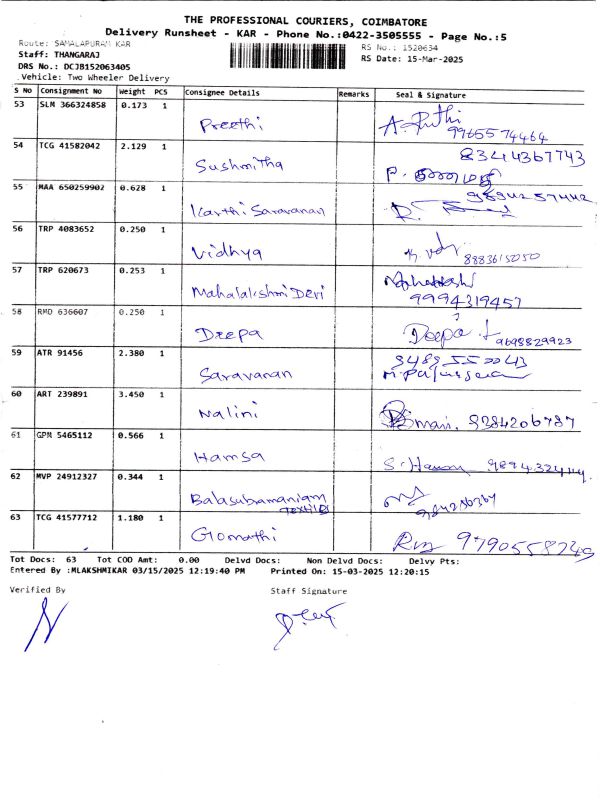 THE PROFESSIONAL COURIERS, COIMBATORE
Delivery Runsheet - KAR - Phone No.:0422-3505555 - Page No.:5
Route: SAMALAPURAM KAR
RS No.: 1520634
Staff: THANGARAJ
RS Date: 15-Mar-2025
DRS No.: DCJB152063405
Vehicle: Two Wheeler Delivery
S No Consignment No Weight PCS Consignee Details Remarks Seal & Signature
53 SLM 366324858 0.173 1
Preethi
9965574464
54 TCG 41582042 2.129 1
8344367743
Sushmitha
55 MAA 650259902 0.628 1
9894257442
Karthi Saravanan
56 TRP 4083652 0.250 1
Vidhya
8883615050
57 TRP 620673 0.253 1
Mahalakshmi Devi
9994319457
58 RMD 636607 0.250 1
Deepa Deepa
9698829923
59 ATR 91456 2.380 1
Saravanan
60 ART 239891 3.450 1
Nalini
61 GPM 5465112 0.566 1
Hamsa
62 MVP 24912327 0.344 1
Balasubramaniam
Textiles
63 TCG 41577712 1.180 1
Gomathi
Tot Docs: 63 Tot COD Amt: 0.00 Delvd Docs: Non Delvd Docs: Delvy Pts:
Entered By :MLAKSHMIKAR 03/15/2025 12:19:40 PM Printed On: 15-03-2025 12:20:15
Verified By Staff Signature